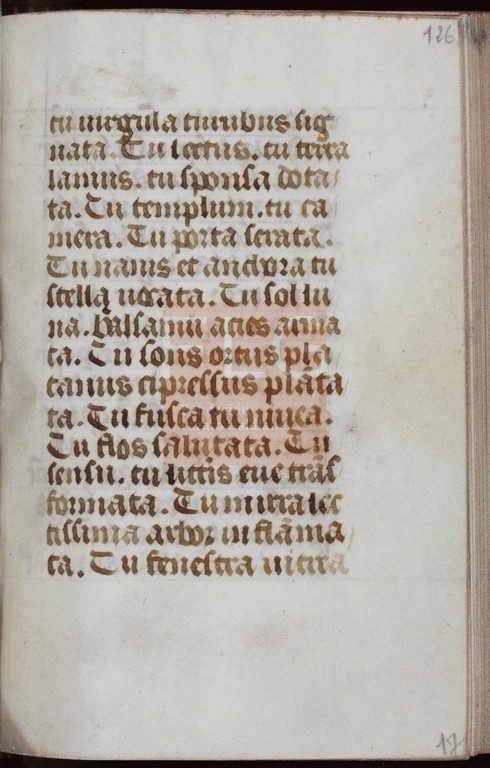 126
tu uirgula turribus sig
nata. Tu lectus. tu terra
lamus. tu sponsa dota
ta. Tu templum. tu ca
mera. Tu porta serata.
Tu nauis et anchora tu
stella uocata. Tu sol lu
na. balsamū acies arma
ta. Tu fons ortus pla
tanus cipressus plāta
ta. Tu fusca tu niuea.
Tu flos salutata. Tu
sensu. tu uitis eue trās
formata. Tu mirra lec
tissima arbor in flāma
ta. Tu fenestra uitrea
17